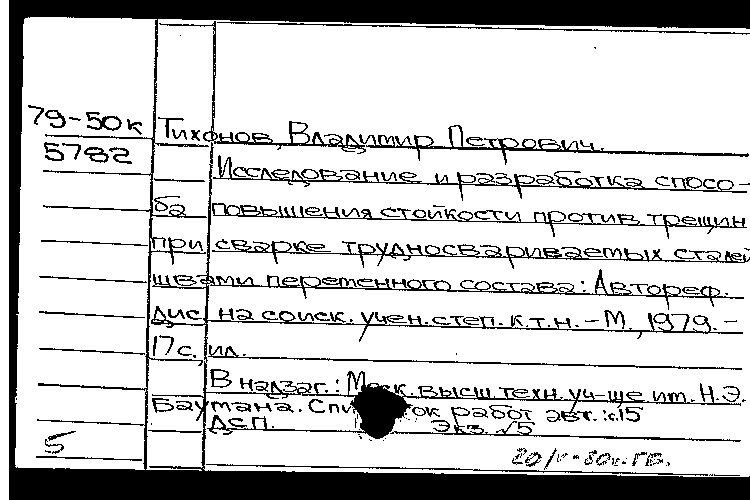 79-50к Тихонов, Владимир Петрович.
5782 Исследование и разработка спосо-
ба повышения стойкости против трещин
при сварке трудносвариваемых сталей
швами переменного состава: Автореф.
дис. на соиск. учен. степ. к.т.н. – М., 1979. –
17 с., ил.
В надзаг.: Моск. высш. техн. уч-ще им. Н.Э.
Баумана. Список работ авт.: с.15
ДСП. Экз. √5
5